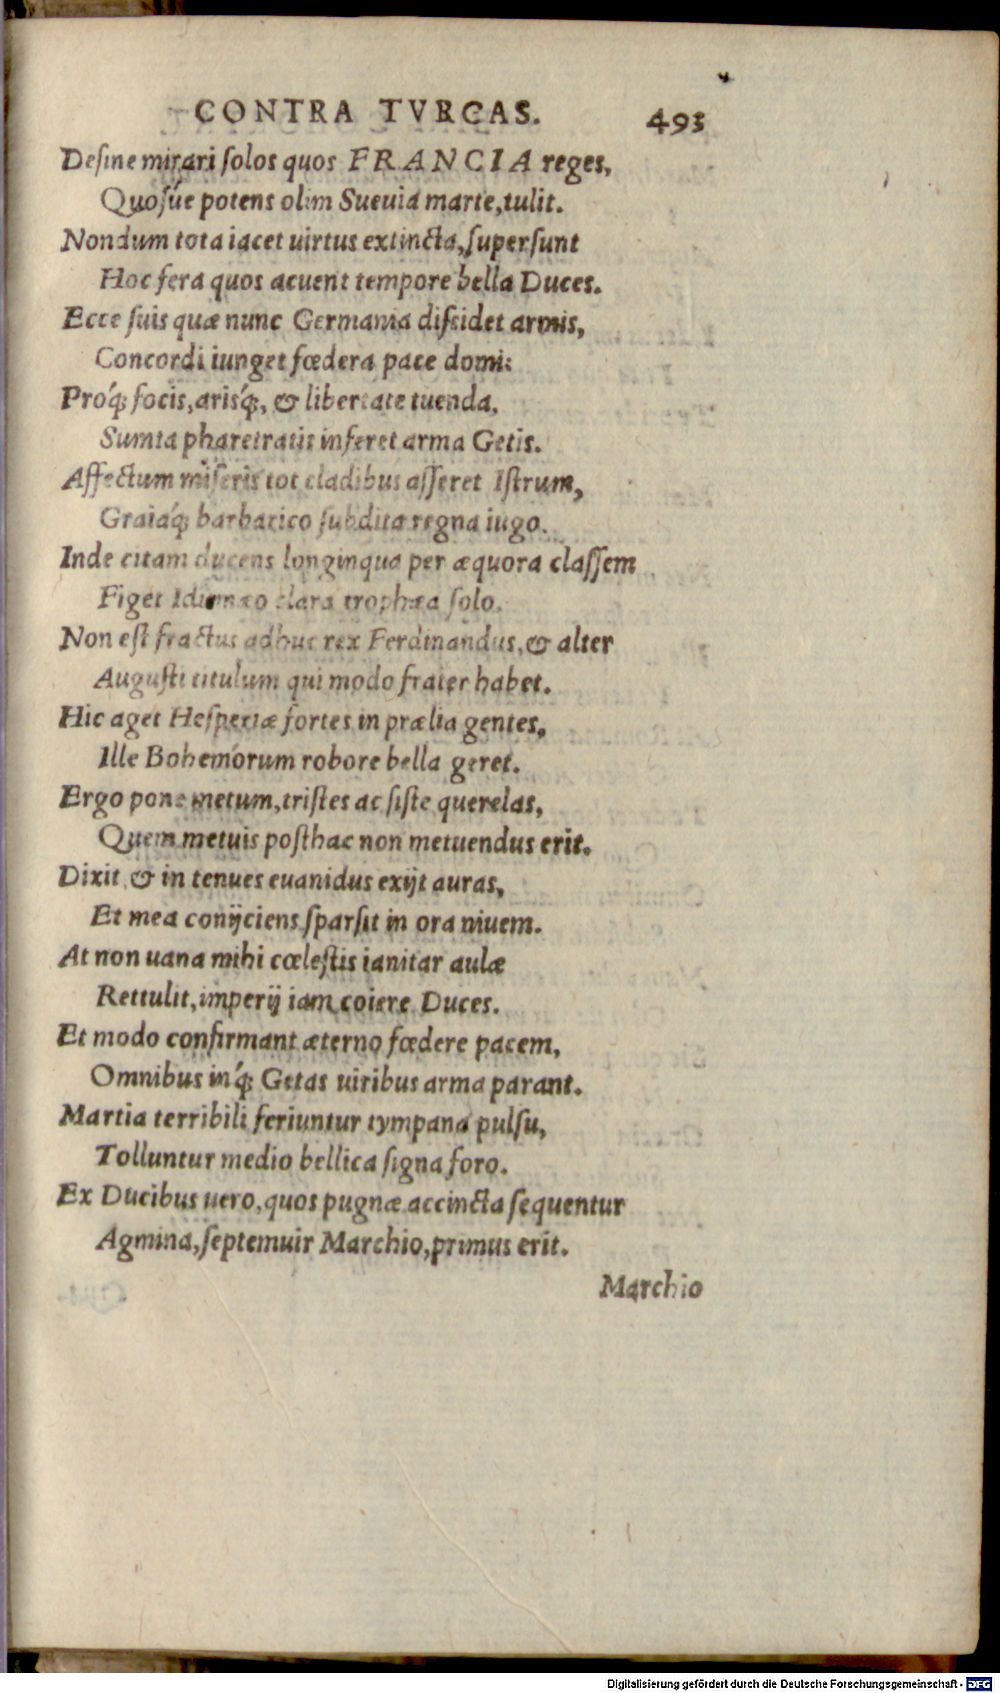 CONTRA TVRCAS. 493
Desine mirari solos quos FRANCIA reges,
Quosúe potens olim Sueuia marte, tulit.
Nondum tota iacet uirtus extincta, supersunt
Hoc fera quos acuent tempore bella Duces.
Ecce suis quæ nunc Germania discidet armis,
Concordi iunget fœdera pace domi:
Proq́; focis, arisq́;, & libertate tuenda,
Sumta pharetratis inferet arma Getis.
Affectum miseris tot cladibus asseret Istrum,
Graiaq́; barbarico subdita regna iugo.
Inde citam ducens longinqua per æquora classem
Figet Idumæo clara trophæa solo.
Non est fractus adhuc rex Ferdinandus, & alter
Augusti titulum qui modo frater habet.
Hic aget Hesperiæ fortes in prælia gentes,
Ille Bohemórum robore bella geret.
Ergo pone metum, tristes ac siste querelas,
Quem metuis posthac non metuendus erit.
Dixit & in tenues euanidus exijt auras,
Et mea conijciens sparsit in ora niuem.
At non uana mihi cœlestis ianitar aulæ
Rettulit, imperij iam coiere Duces.
Et modo confirmant æterno fœdere pacem,
Omnibus inq́; Getas uiribus arma parant.
Martia terribili feriuntur tympana pulsu,
Tolluntur medio bellica signa foro.
Ex Ducibus uero, quos pugnæ accincta sequentur
Agmina, septemuir Marchio, primus erit.
Marchio
Digitalisierung gefördert durch die Deutsche Forschungsgemeinschaft - DFG